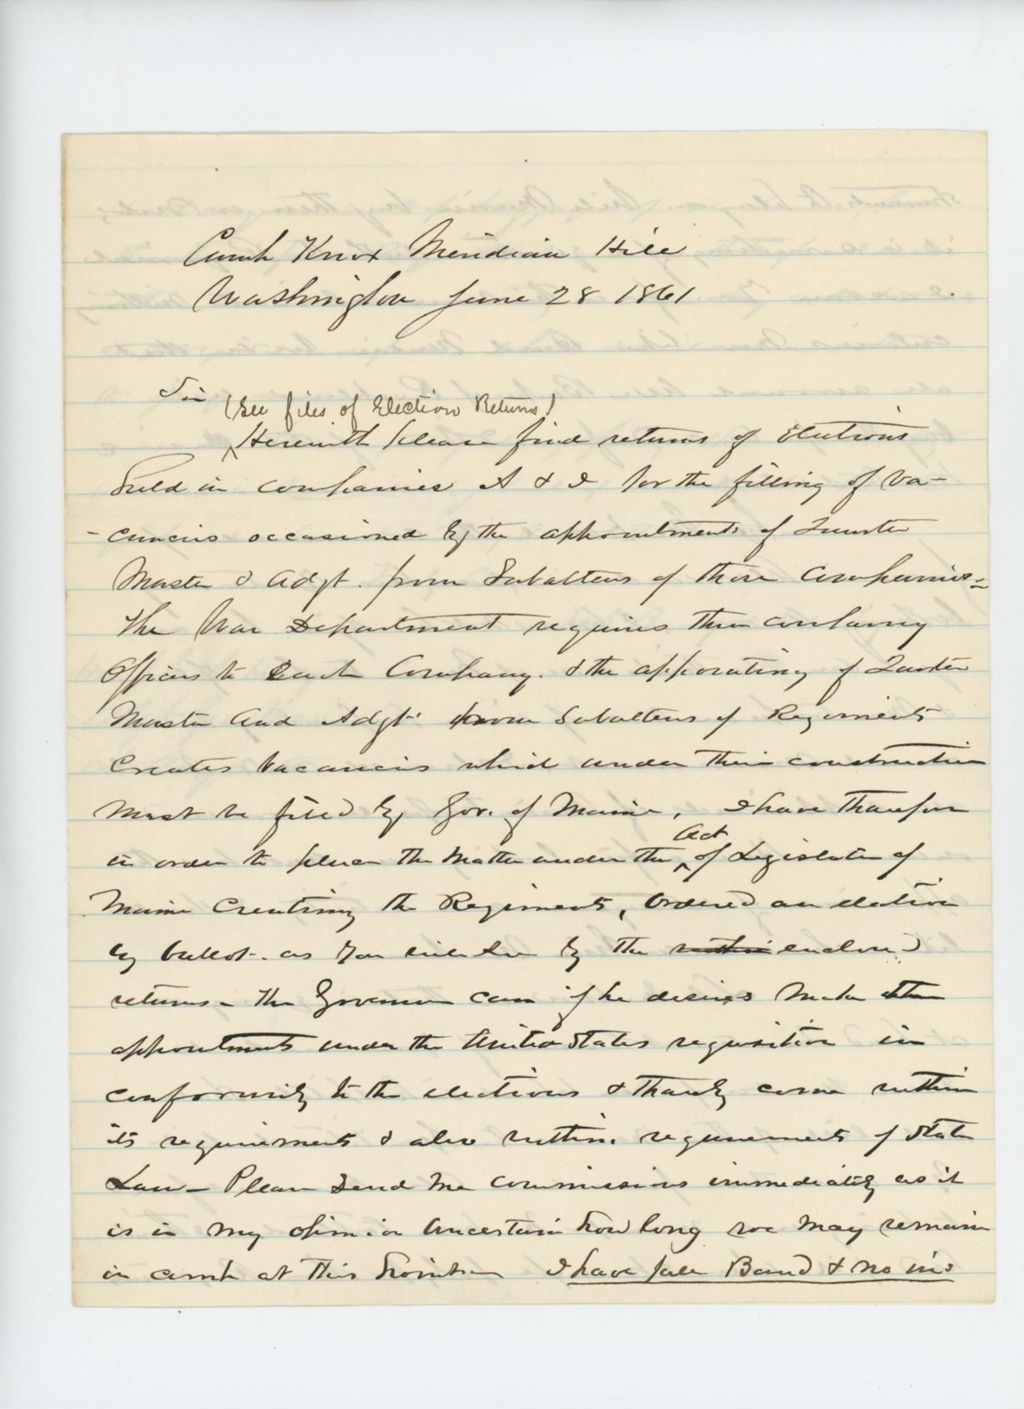 Camp Knox Meridian Hill
Washington June 28 1861
Sir
(See files of Election Returns)
Herewith please find returns of Elections
held in companies A & I for the filling of va-
-cancies occasioned by the appointments of Quarter
Master & Adgt. from Subalterns of those Companies =
The War Department requires three company
Officers to Each Company. & the appointing of Quarter
Master and Adgt from Subalterns of Regiments
Creates Vacancies which under their construction
must be filled by Gov. of Maine, I have therefore
in order to place the matter under the Act of Legislature of
Maine Creating the Regiments, Ordered an election
by ballot. as you will see by the within enclosed
returns - The Governor can if he desires make
appointments under the United States requisition in
conformity to the elections & thereby come within
its requirements & also within requirements of State
Law - Please Send me commissions immediately as it
is in my opinion Uncertain how long we may remain
in camp at this point - I have full Band & no ins